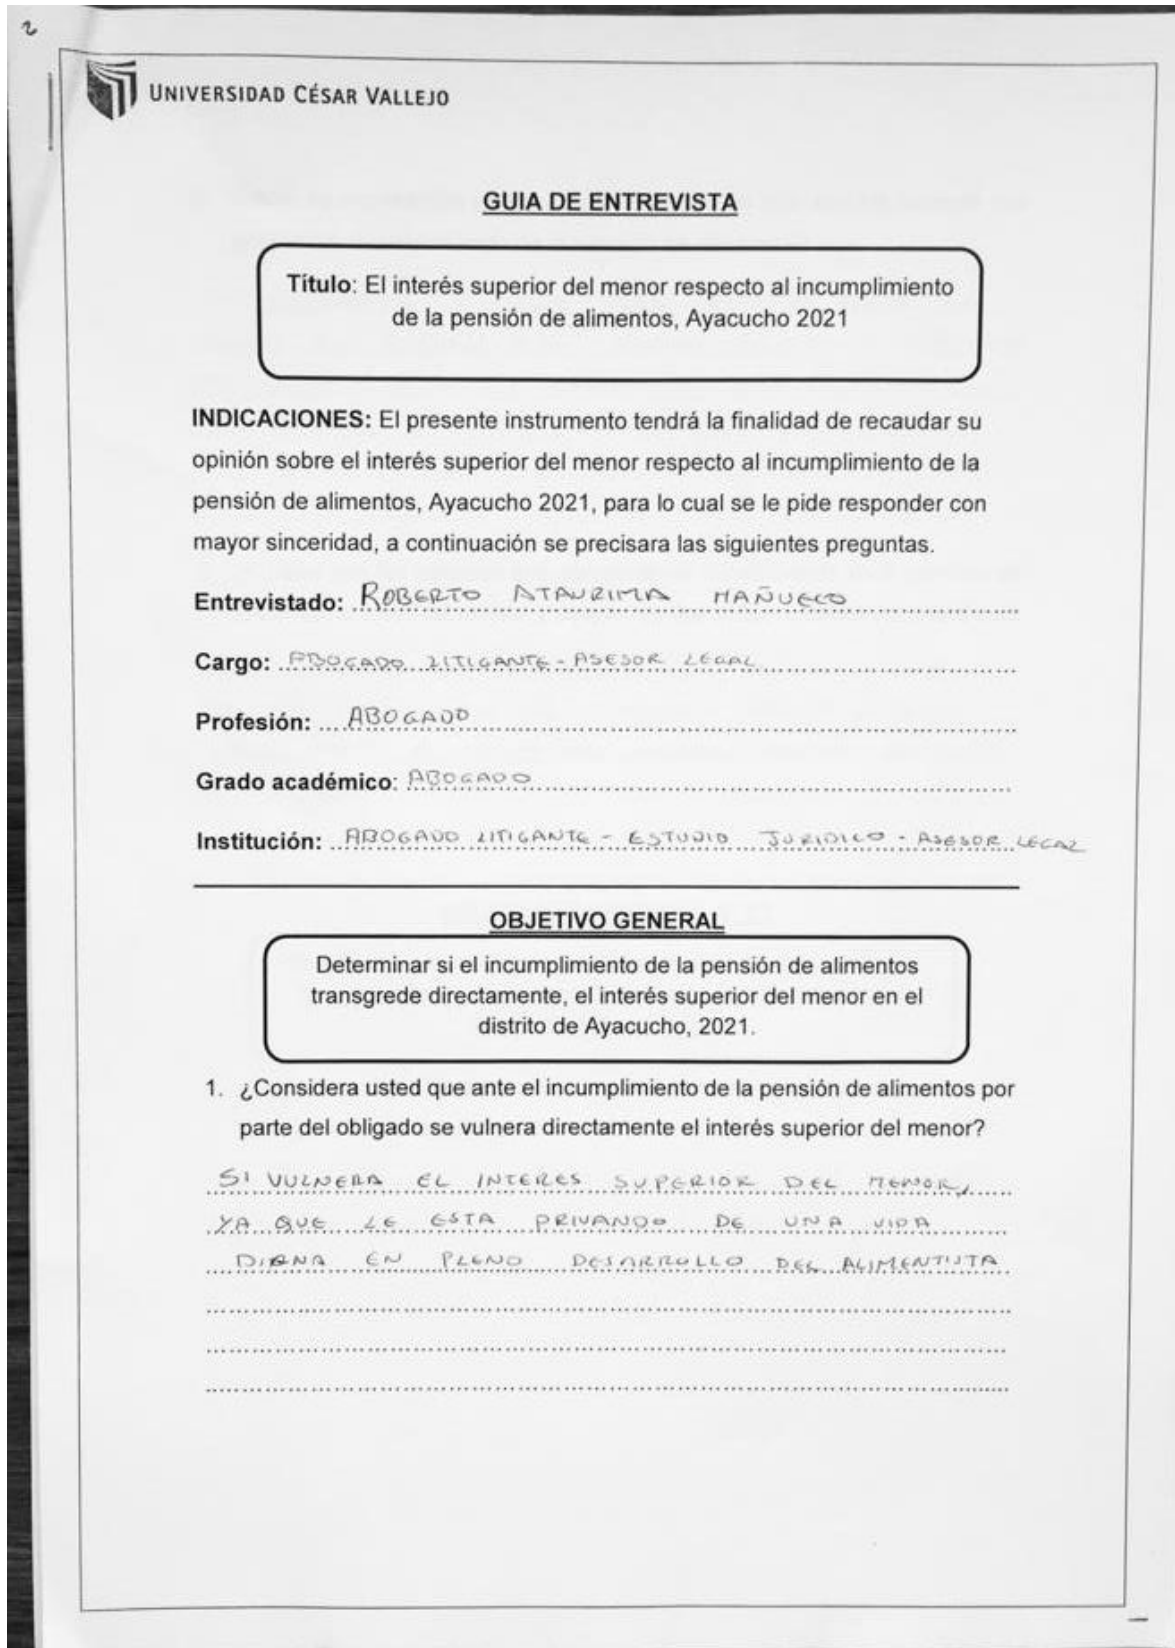 2
UNIVERSIDAD CÉSAR VALLEJO
GUIA DE ENTREVISTA
Título: El interés superior del menor respecto al incumplimiento
de la pensión de alimentos, Ayacucho 2021
INDICACIONES: El presente instrumento tendrá la finalidad de recaudar su
opinión sobre el interés superior del menor respecto al incumplimiento de la
pensión de alimentos, Ayacucho 2021, para lo cual se le pide responder con
mayor sinceridad, a continuación se precisara las siguientes preguntas.
Entrevistado: ROBERTO ATAURIMA MAÑUECO
Cargo: ABOGADO LITIGANTE - ASESOR LEGAL
Profesión: ABOGADO
Grado académico: ABOGADO
Institución: ABOGADO LITIGANTE - ESTUDIO JURIDICO - ASESOR LEGAL
OBJETIVO GENERAL
Determinar si el incumplimiento de la pensión de alimentos
transgrede directamente, el interés superior del menor en el
distrito de Ayacucho, 2021.
1. ¿Considera usted que ante el incumplimiento de la pensión de alimentos por
parte del obligado se vulnera directamente el interés superior del menor?
SI VULNERA EL INTERES SUPERIOR DEL MENOR,
YA QUE LE ESTA PRIVANDO DE UNA VIDA
DIGNA EN PLENO DESARROLLO DEL ALIMENTISTA